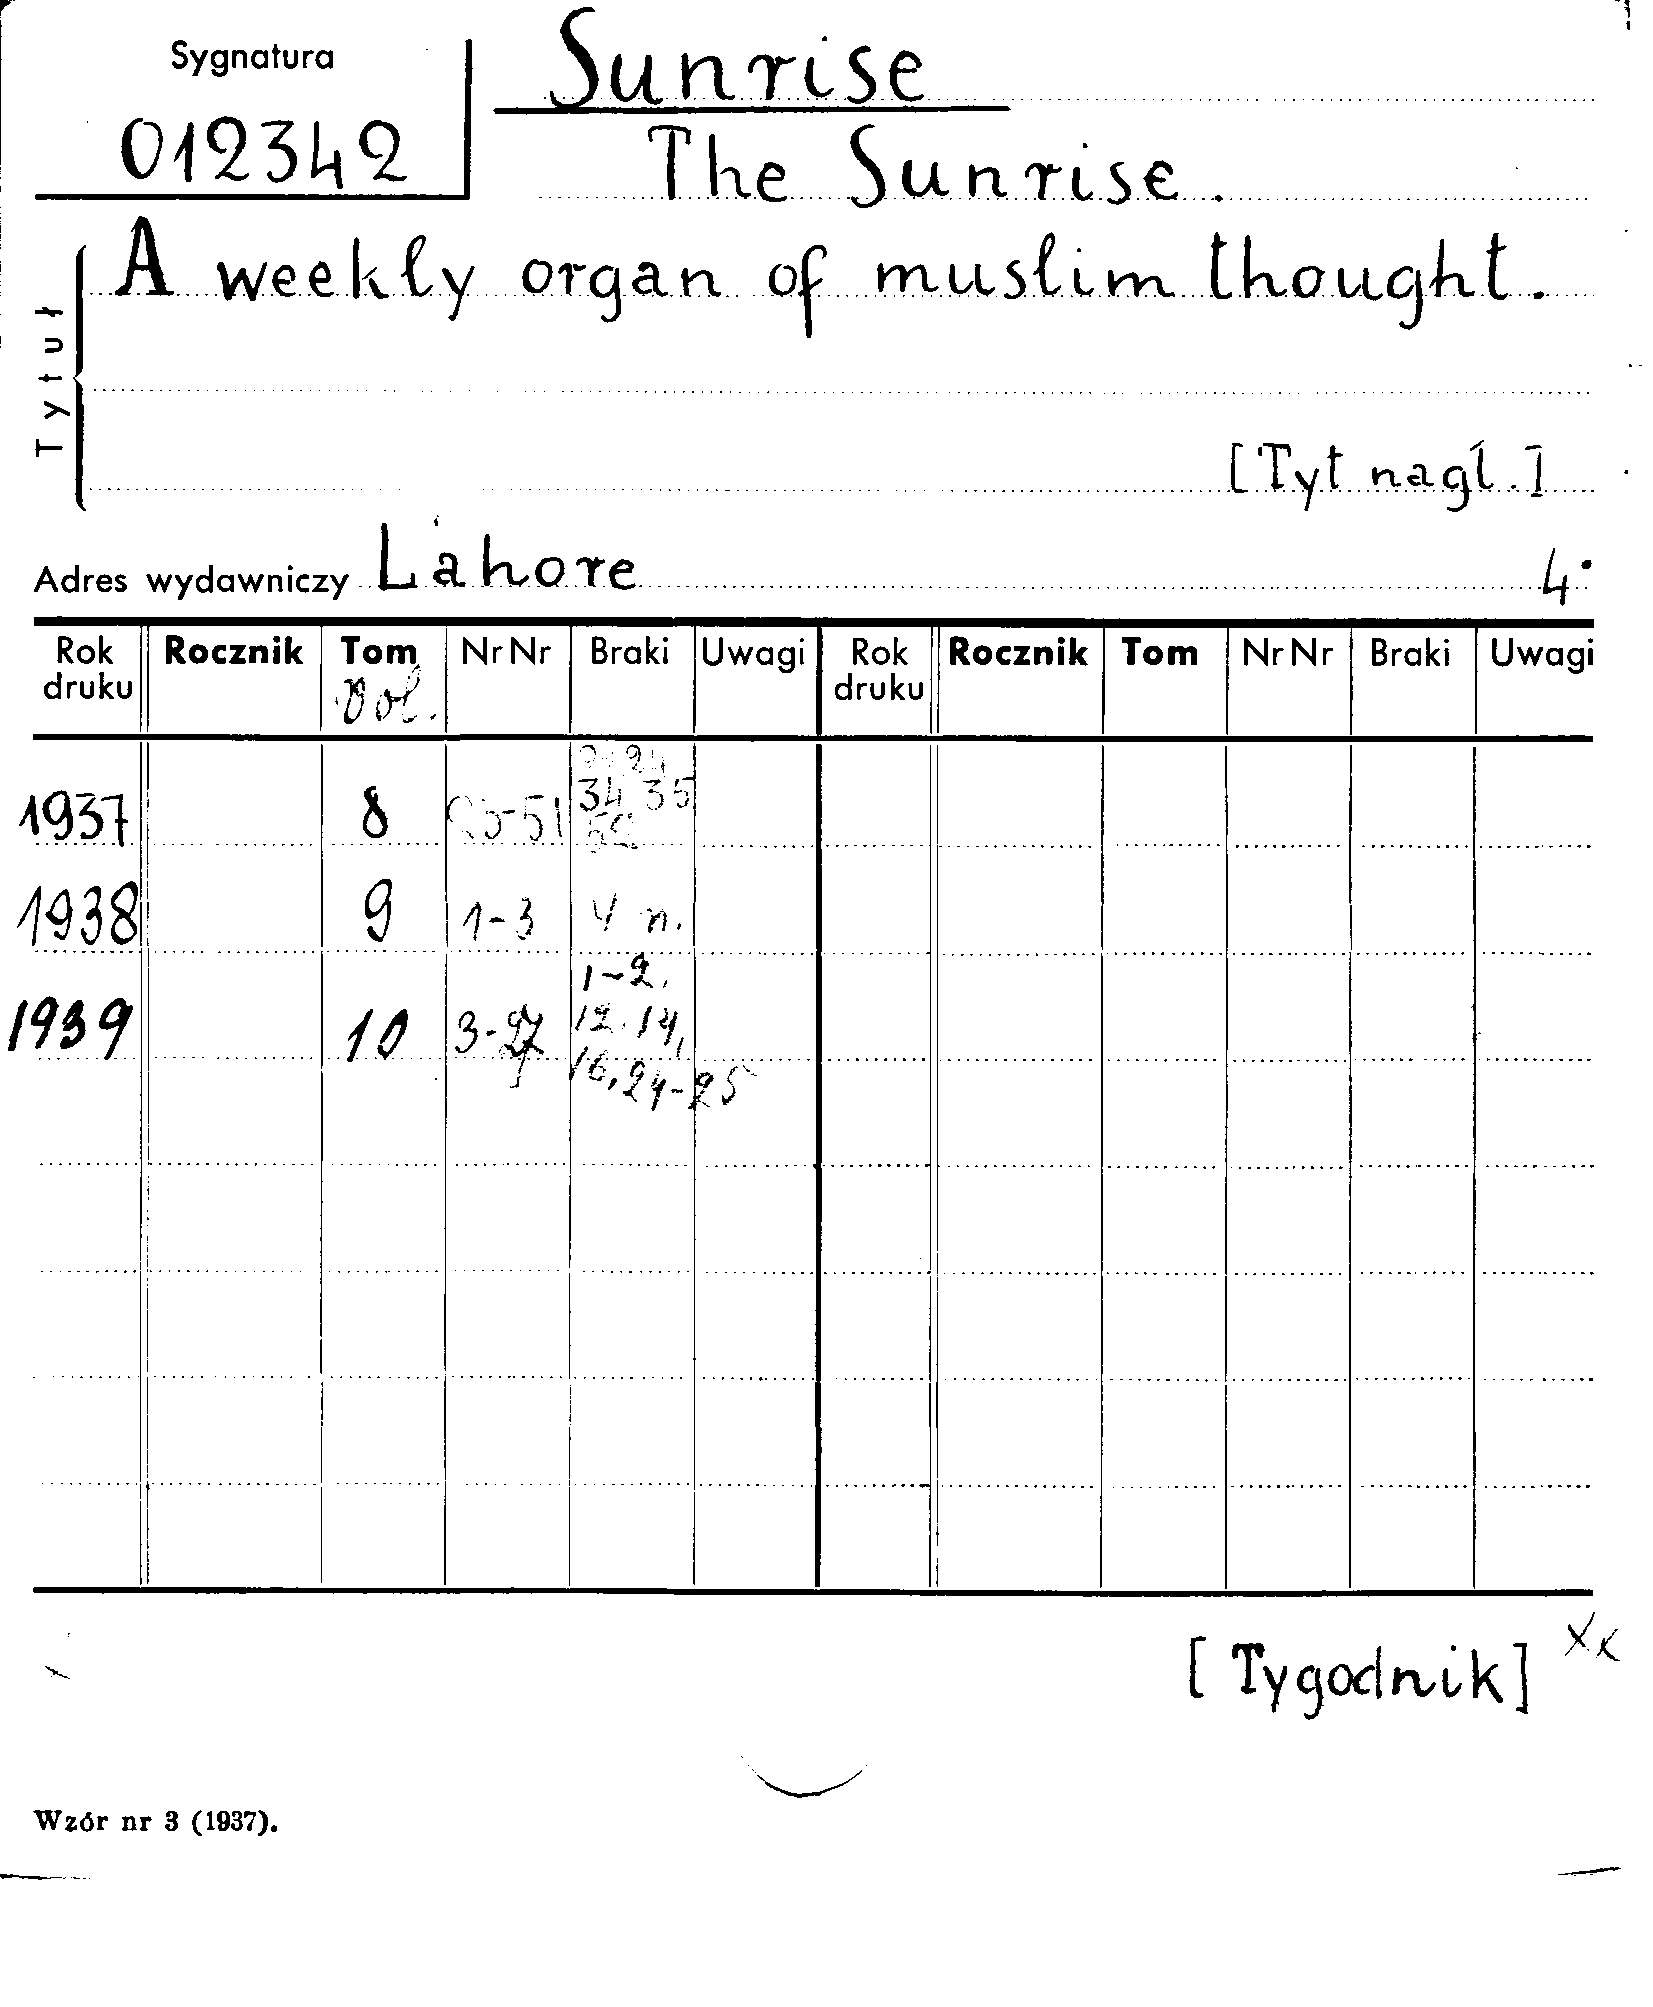 Sygnatura
012342
Sunrise
The Sunrise.
Tytuł
A weekly organ of muslim thought.
[Tyt nagł.]
Adres wydawniczy Lahore 4°
Rok druku Rocznik Tom Nr Nr Braki Uwagi Rok druku Rocznik Tom Nr Nr Braki Uwagi
Vol.
24
34 35
1937 8 -51 52
1938 9 1-3 4 n.
1-2.
1939 10 3-27 12. 14,
16, 24-25
[Tygodnik] xx
Wzór nr 3 (1937).